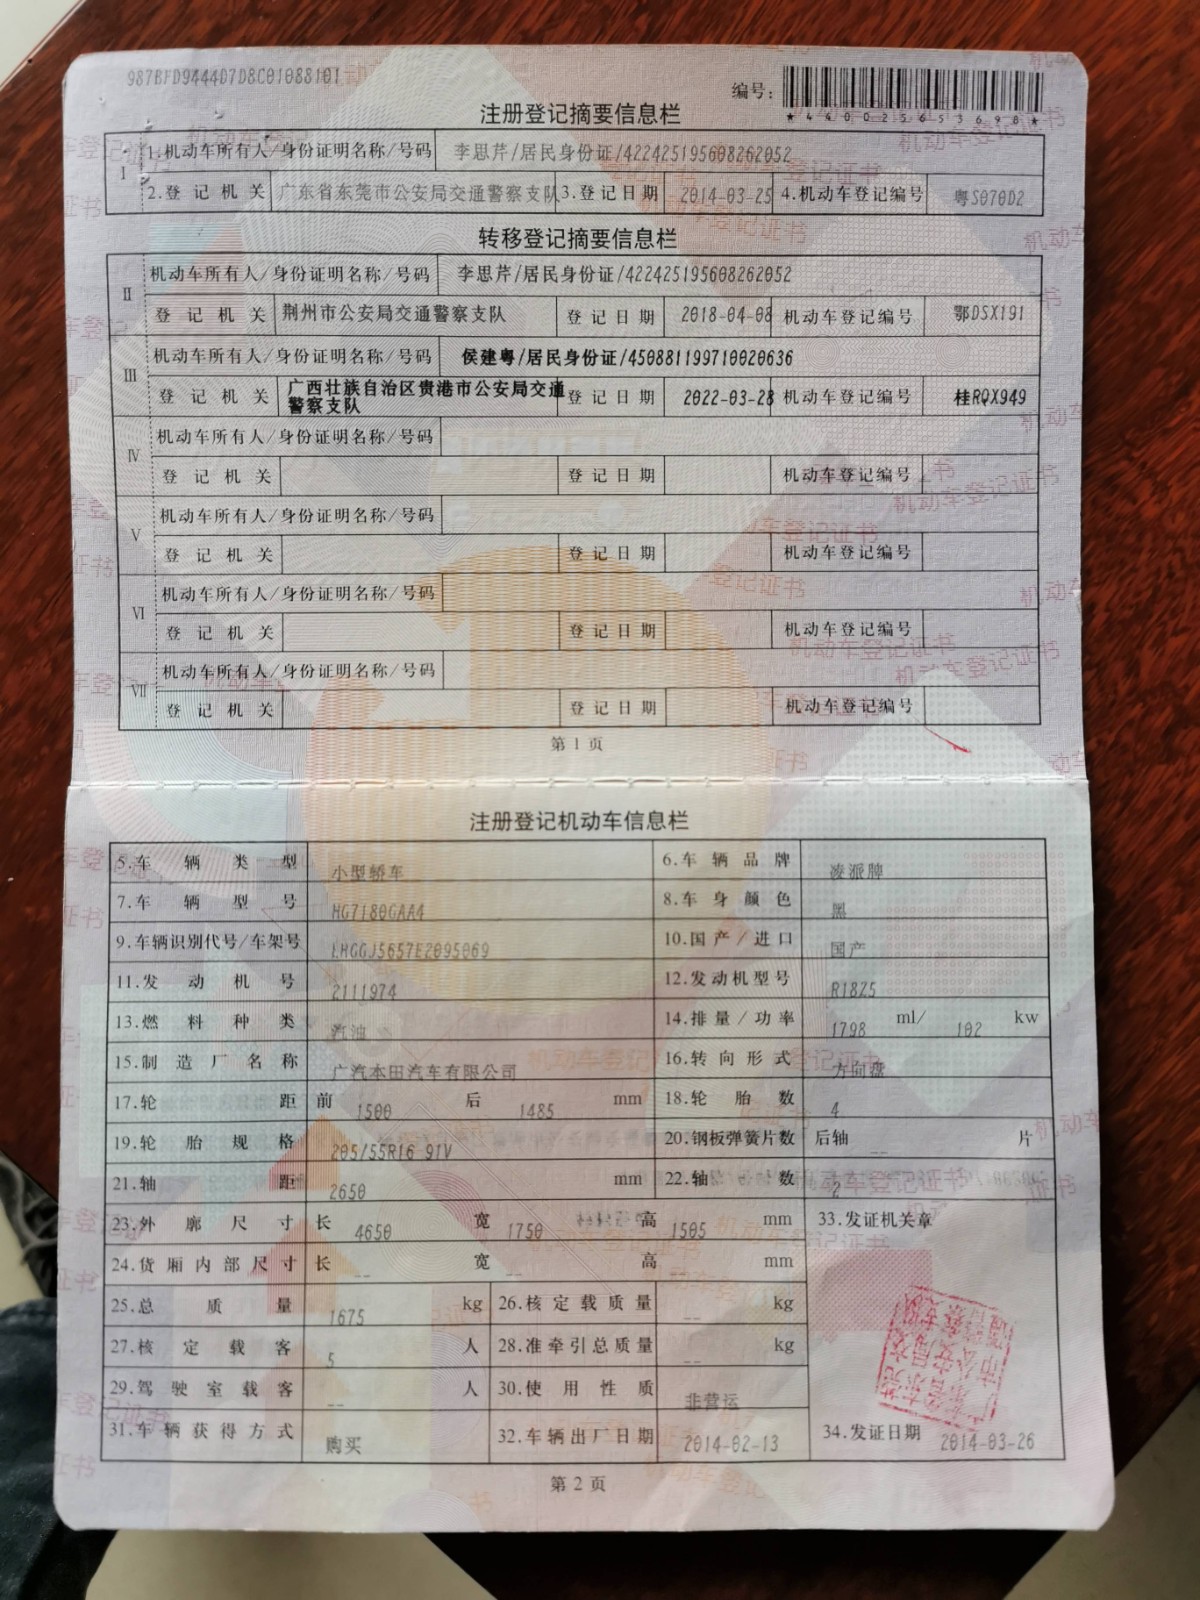 987BFD9444D7D8C01088101
编号：
★440025653690★
注册登记摘要信息栏
I
1.机动车所有人/身份证明名称/号码 李思芹/居民身份证/422425195608262052
2.登记机关 广东省东莞市公安局交通警察支队 3.登记日期 2014-03-25 4.机动车登记编号 粤S070D2
转移登记摘要信息栏
II
机动车所有人/身份证明名称/号码 李思芹/居民身份证/422425195608262052
登记机关 荆州市公安局交通警察支队 登记日期 2018-04-08 机动车登记编号 鄂DSX191
III
机动车所有人/身份证明名称/号码 侯建粤/居民身份证/450881199710020636
登记机关 广西壮族自治区贵港市公安局交通警察支队 登记日期 2022-03-28 机动车登记编号 桂RQX949
IV
机动车所有人/身份证明名称/号码
登记机关 登记日期 机动车登记编号
V
机动车所有人/身份证明名称/号码
登记机关 登记日期 机动车登记编号
VI
机动车所有人/身份证明名称/号码
登记机关 登记日期 机动车登记编号
VII
机动车所有人/身份证明名称/号码
登记机关 登记日期 机动车登记编号
第1页
注册登记机动车信息栏
5.车辆类型 小型轿车 6.车辆品牌 凌派牌
7.车辆型号 HG7180GAA4 8.车身颜色 黑
9.车辆识别代号/车架号 LHGGJ5657E2095069 10.国产/进口 国产
11.发动机号 2111974 12.发动机型号 R18Z5
13.燃料种类 汽油 14.排量/功率 1798 ml/ 102 kw
15.制造厂名称 广汽本田汽车有限公司 16.转向形式 方向盘
17.轮距 前 1500 后 1485 mm 18.轮胎数 4
19.轮胎规格 205/55R16 91V 20.钢板弹簧片数 后轴 -- 片
21.轴距 2650 mm 22.轴数 2
23.外廓尺寸 长 4650 宽 1750 高 1505 mm 33.发证机关章
24.货厢内部尺寸 长 -- 宽 -- 高 mm
25.总质量 1675 kg 26.核定载质量 -- kg
27.核定载客 5 人 28.准牵引总质量 -- kg
29.驾驶室载客 -- 人 30.使用性质 非营运
31.车辆获得方式 购买 32.车辆出厂日期 2014-02-13 34.发证日期 2014-03-26
第2页